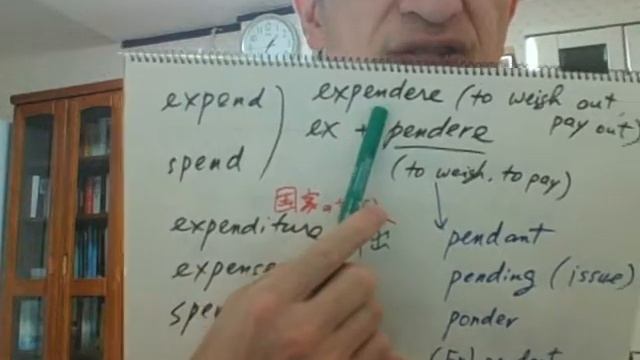 expend ) expendere (to weigh out,
pay out)
ex + pendere
spend
(to weigh, to pay)
国家
expenditure 出
pendant
expense
pending (issue)
ponder